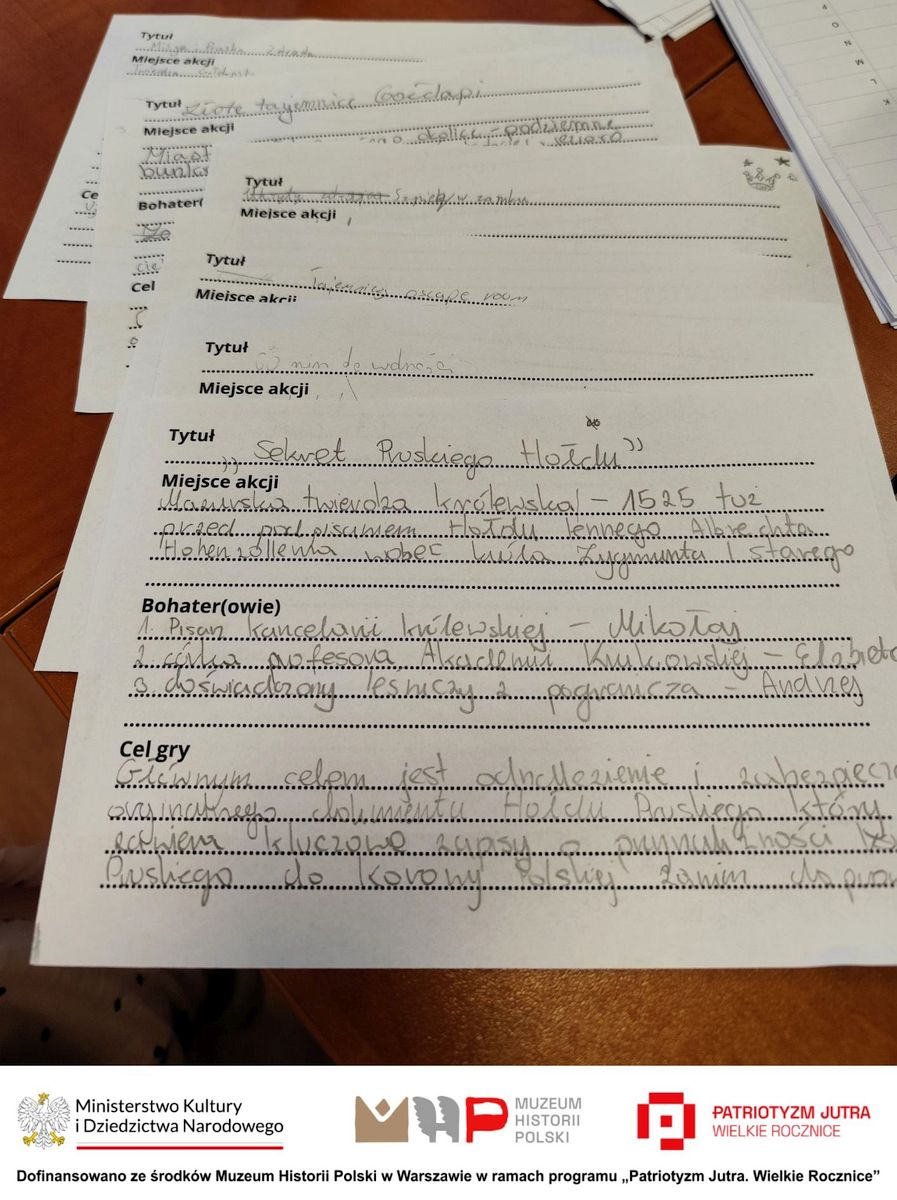 Tytuł
Zdrada
Miejsce akcji
Tytuł
Złote tajemnice Gołdapi
Miejsce akcji
Miast okolice - podziemne
bunkr
Ce
Bohater(
cie
Cel
Tytuł
w zamku
Miejsce akcji
Tytuł
Tajemniczy escape room
Miejsce akcji
Tytuł
do wolności
Miejsce akcji
Tytuł
„Sekret Pruskiego Hołdu”
Miejsce akcji
Mazurska twierdza królewska - 1525 tuż
przed podpisaniem Hołdu lennego Albrechta
Hohenzollerna wobec króla Zygmunta I Starego
Bohater(owie)
1. Pisarz kancelarii królewskiej - Mikołaj
2. córka profesora Akademii Krakowskiej - Elżbieta
3. doświadczony leśniczy z pogranicza - Andrzej
Cel gry
Głównym celem jest odnalezienie i zabezpiecze
oryginalnego dokumentu Hołdu Pruskiego który
zawiera kluczowe zapisy o przynależności
Pruskiego do Korony Polskiej zanim
K
L
M
N
O
P
Ministerstwo Kultury
i Dziedzictwa Narodowego
MHP
MUZEUM
HISTORII
POLSKI
PATRIOTYZM JUTRA
WIELKIE ROCZNICE
Dofinansowano ze środków Muzeum Historii Polski w Warszawie w ramach programu „Patriotyzm Jutra. Wielkie Rocznice”